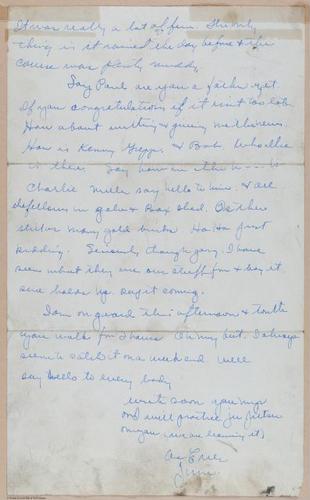 It was really a lot of fun. The only
thing is it rained the day before & the
course was plenty muddy.
Say Paul are you a father yet.
If you congratulations if it isn't too late.
How about writing & giving me the news.
How is Kenny Gregg. & Bob Wheeller
is there. Say how in the h---- is
Charlie Miller say hello to him. & all
the fellows in galv & Box shed. Is there
still so many gold bricks Ha Ha just
kidding. Seriously though gang, I have
seen what they use our stuff for & boy it
sure holds up. Keep it coming.
I am on guard this afternoon & tonite
you walk for 3 hours Oh my feet. I always
seem to catch it on a weekend well
say hello to every body
write soon you guys
or I will practice jiu jitsu
on you (we are learning it)
As Ever